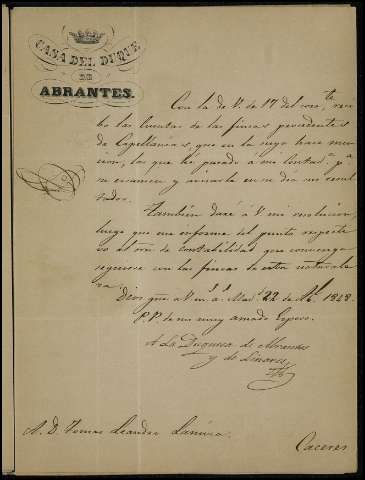 CASA DEL DUQUE
DE
ABRANTES.
Con la de V. de 17 del corr.te reci
bo las cuentas de las fincas procedentes
de Capellanías, que en la suya hace men
cion, las que he pasado á mi Contad.a p.a
su examen y avisarle en su dia mi resul
tados.
Tambien daré á V. mi resolucion,
luego que me informe del punto respecti
vo el of.l de contabilidad que convenga
seguirse con las fincas de esta naturale
za.
Dios gue á V. m.s a.s Mad.d 22 de 1848.
P.P. de mi muy amado Esposo.
A La Duquesa de Abrantes
y de Linares
S. D. Tomas Leandro
Caceres